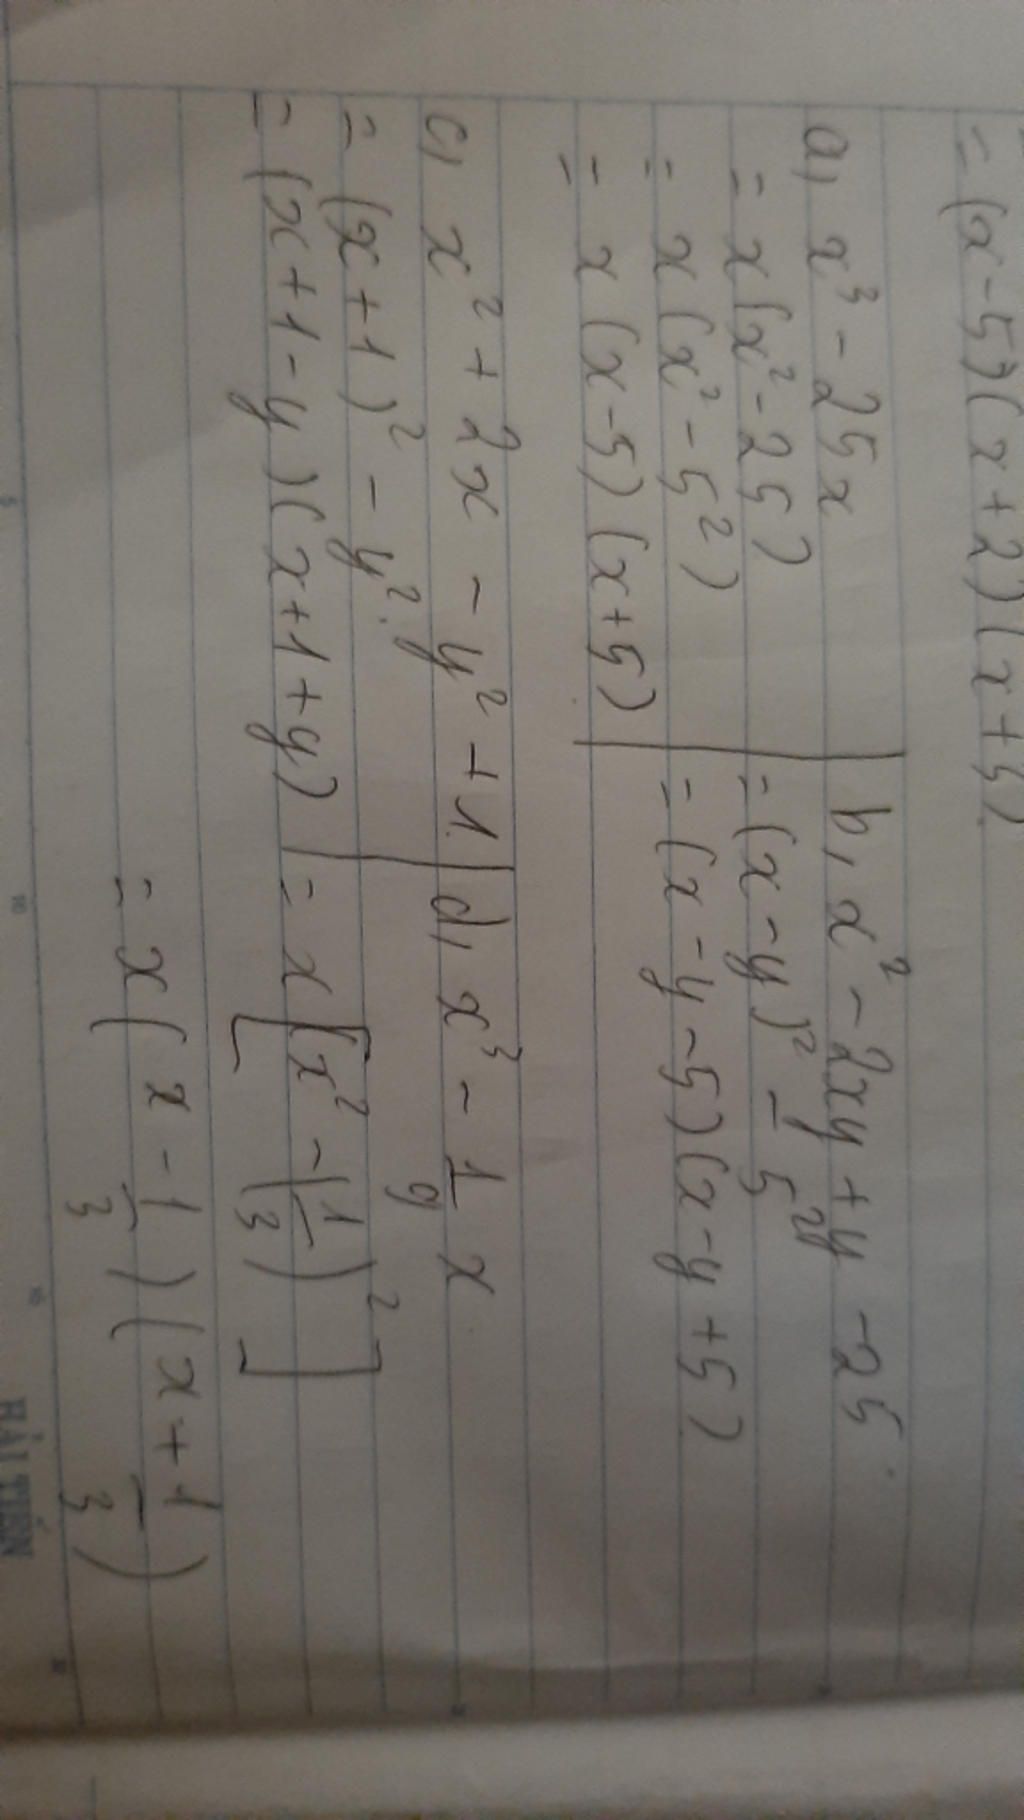 = (x-5)(x+2)(x+5)
a, x³ - 25x
= x(x² - 25)
= x(x² - 5²)
= x(x-5)(x+5)
b, x² - 2xy + y² - 25
= (x-y)² - 5²
= (x-y-5)(x-y+5)
c, x² + 2x - y² + 1
= (x+1)² - y²
= (x+1-y)(x+1+y)
d, x³ - 1/9 x
= x[x² - (1/3)²]
= x(x - 1/3)(x + 1/3)
HẢI TIẾN